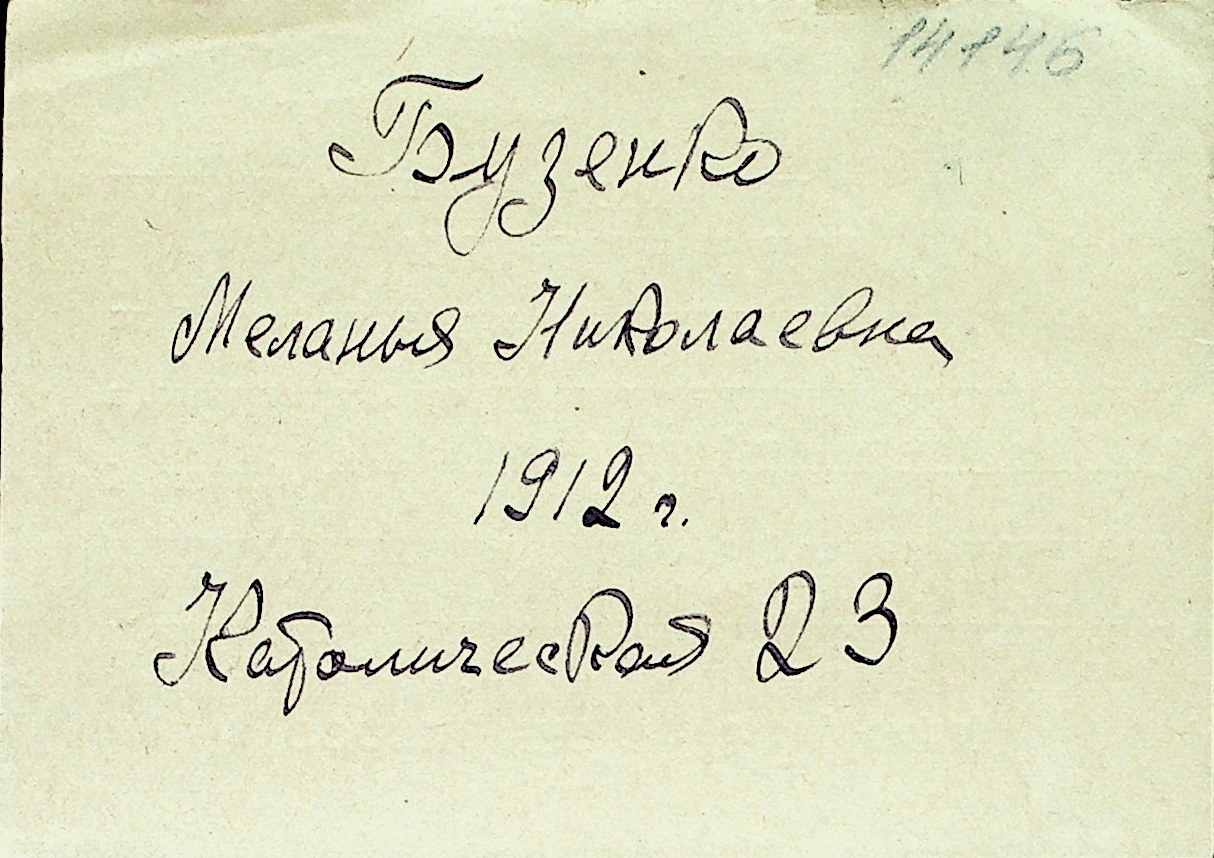 14146
Бузенко
Меланья Николаевна
1912 г.
Католическая 23